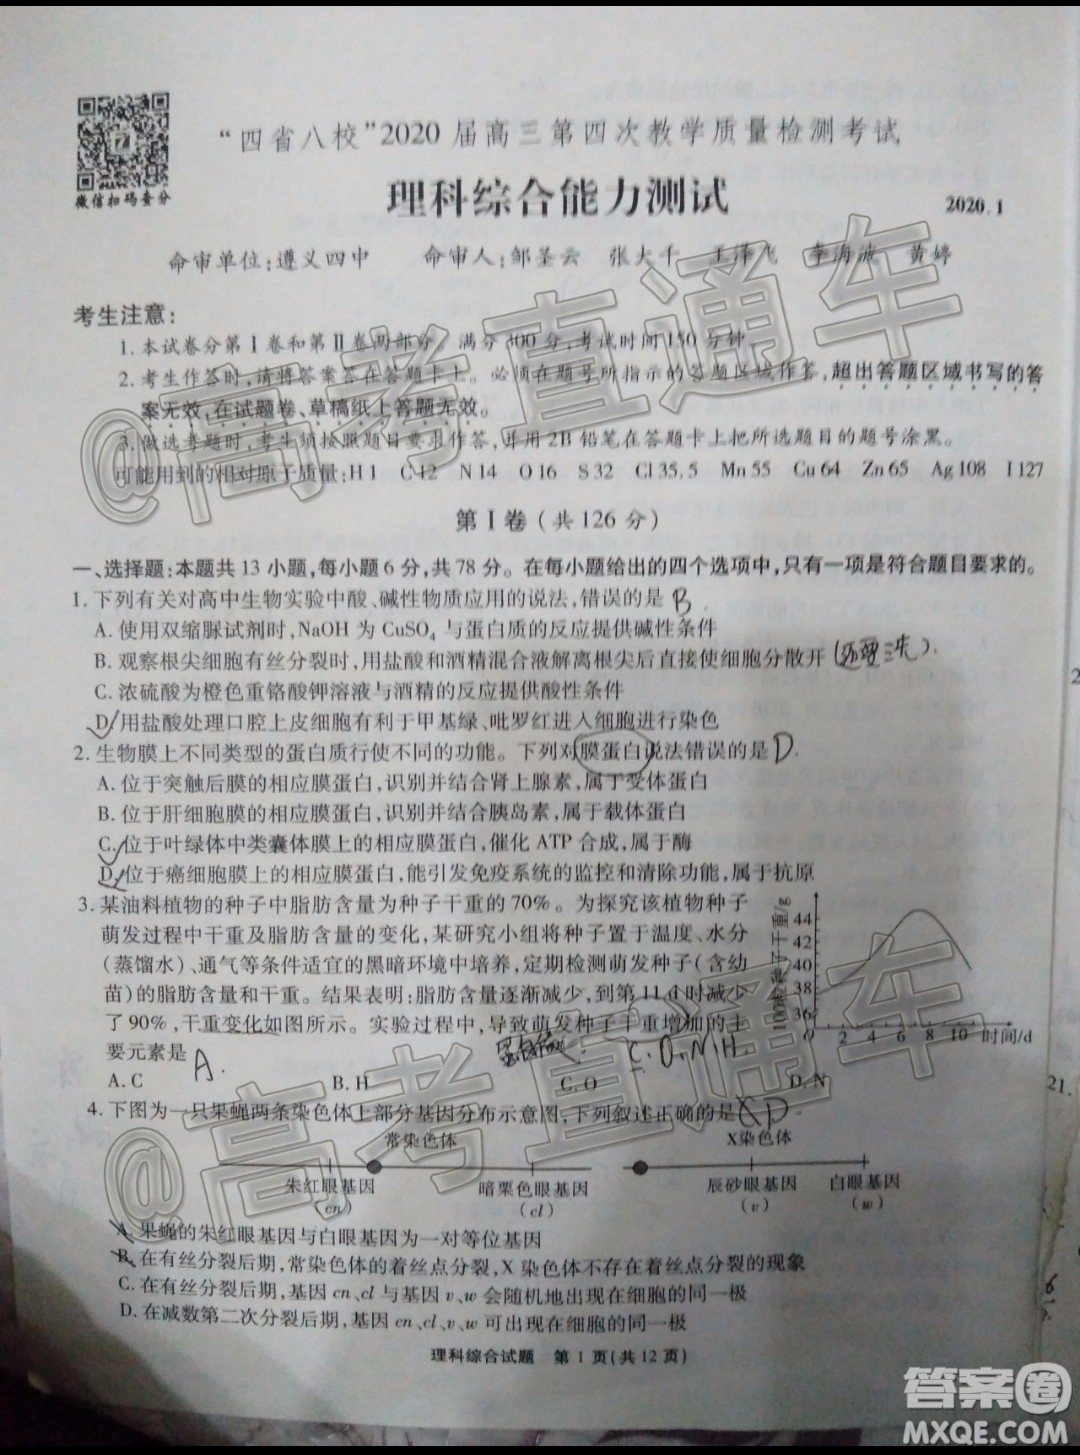 “四省八校”2020届高三第四次教学质量检测考试
微信扫码查分
理科综合能力测试
2020.1
命审单位:遵义四中 命审人:邹圣云 张大千 王泽飞 李海波 黄婷
考生注意:
1.本试卷分第Ⅰ卷和第Ⅱ卷两部分。满分300分,考试时间150分钟。
2.考生作答时,请将答案答在答题卡上。必须在题号所指示的答题区域作答,超出答题区域书写的答
案无效,在试题卷、草稿纸上答题无效。
3.做选考题时,考生须按照题目要求作答,并用2B铅笔在答题卡上把所选题目的题号涂黑。
可能用到的相对原子质量:H 1 C 12 N 14 O 16 S 32 Cl 35.5 Mn 55 Cu 64 Zn 65 Ag 108 I 127
第Ⅰ卷(共126分)
一、选择题:本题共13小题,每小题6分,共78分。在每小题给出的四个选项中,只有一项是符合题目要求的。
1.下列有关对高中生物实验中酸、碱性物质应用的说法,错误的是 B
A.使用双缩脲试剂时,NaOH为CuSO₄与蛋白质的反应提供碱性条件
B.观察根尖细胞有丝分裂时,用盐酸和酒精混合液解离根尖后直接使细胞分散开
C.浓硫酸为橙色重铬酸钾溶液与酒精的反应提供酸性条件
D.用盐酸处理口腔上皮细胞有利于甲基绿、吡罗红进入细胞进行染色
2.生物膜上不同类型的蛋白质行使不同的功能。下列对膜蛋白说法错误的是 D.
A.位于突触后膜的相应膜蛋白,识别并结合肾上腺素,属于受体蛋白
B.位于肝细胞膜的相应膜蛋白,识别并结合胰岛素,属于载体蛋白
C.位于叶绿体中类囊体膜上的相应膜蛋白,催化ATP合成,属于酶
D.位于癌细胞膜上的相应膜蛋白,能引发免疫系统的监控和清除功能,属于抗原
3.某油料植物的种子中脂肪含量为种子干重的70%。为探究该植物种子
萌发过程中干重及脂肪含量的变化,某研究小组将种子置于温度、水分
(蒸馏水)、通气等条件适宜的黑暗环境中培养,定期检测萌发种子(含幼
苗)的脂肪含量和干重。结果表明:脂肪含量逐渐减少,到第11 d时减少
了90%,干重变化如图所示。实验过程中,导致萌发种子干重增加的主
要元素是 A.
C.O.N H.
100粒种子干重/g
44
42
40
38
36
0 2 4 6 8 10 时间/d
A.C B.H C.O D.N
4.下图为一只果蝇两条染色体上部分基因分布示意图,下列叙述正确的是 D
常染色体 X染色体
朱红眼基因 暗栗色眼基因 辰砂眼基因 白眼基因
(cn) (cl) (v) (w)
A.果蝇的朱红眼基因与白眼基因为一对等位基因
B.在有丝分裂后期,常染色体的着丝点分裂,X染色体不存在着丝点分裂的现象
C.在有丝分裂后期,基因cn、cl与基因v、w会随机地出现在细胞的同一极
D.在减数第二次分裂后期,基因cn、cl、v、w可出现在细胞的同一极
理科综合试题 第1页(共12页)
21.
@高考直通车
@高考直通车
答案圈
MXQE.COM